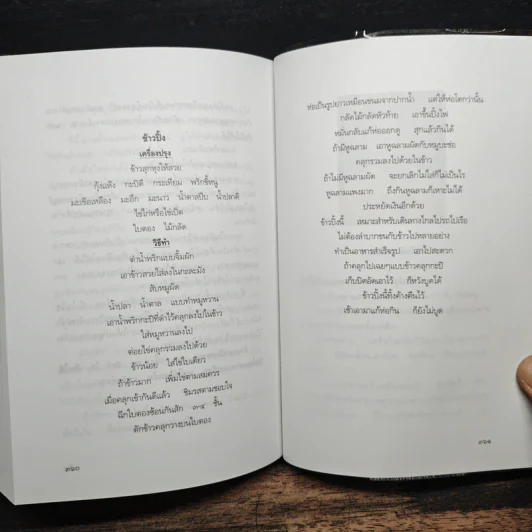 ข้าวปิ้ง
เครื่องปรุง
ข้าวสุกหุงให้สวย
กุ้งแห้ง กะปิดี กระเทียม พริกขี้หนู
มะเขือเหลือง มะอึก มะนาว น้ำตาลปีบ น้ำปลาดี
ไข่ไก่หรือไข่เป็ด
ใบตอง ไม้กลัด
วิธีทำ
ตำน้ำพริกแบบจิ้มผัก
เอาข้าวสวยใส่ลงในกะละมัง
สับหมูผัด
น้ำปลา น้ำตาล แบบทำหมูหวาน
เอาน้ำพริกกะปิที่ตำไว้คลุกลงไปในข้าว
ใส่หมูหวานลงไป
ต่อยไข่คลุกรวมลงไปด้วย
ข้าวน้อย ใส่ไข่ใบเดียว
ถ้าข้าวมาก เพิ่มไข่ตามสมควร
เมื่อคลุกเข้ากันดีแล้ว ชิมรสตามชอบใจ
ฉีกใบตองซ้อนกันสัก ๓-๔ ชั้น
ตักข้าวคลุกวางบนใบตอง
๓๖๐
ห่อเป็นรูปยาวเหมือนขนมจากปากน้ำ แต่ให้ห่อโตกว่านั้น
กลัดไม้กลัดหัวท้าย เอาขึ้นปิ้งไฟ
หมั่นกลับแก้ห่อออกดู สุกแล้วกินได้
ถ้ามีหูฉลาม เอาหูฉลามผัดกับหมูบะช่อ
คลุกรวมลงไปด้วยในข้าว
ถ้าไม่มีหูฉลามผัด จะยกเลิกไม่ใส่ก็ไม่เป็นไร
หูฉลามแพงมาก ถึงกินหูฉลามก็เหาะไม่ได้
ประหยัดเงินอีกด้วย
ข้าวปิ้งนี้ เหมาะสำหรับเดินทางไกลไปรถไปเรือ
ไม่ต้องลำบากขนกับข้าวไปหลายอย่าง
ทำเป็นอาหารสำเร็จรูป เอกไปสะดวก
ถ้าคลุกไปเฉยๆแบบข้าวคลุกกะปิ
เก็บปิดอัดเอาไว้ ก็หวังบูดได้
ข้าวปิ้งนี้ทิ้งค้างคืนไว้
เช้าเอามาแก้ห่อกิน ก็ยังไม่บูด
๓๖๑